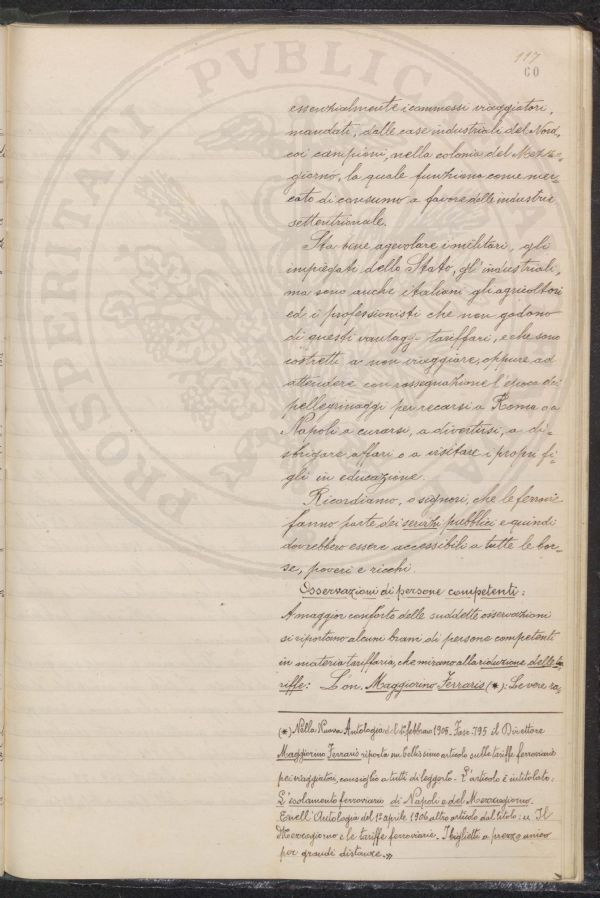 117
60
PROSPERITATI PVBLICAE
essenzialmente i commessi viaggiatori,
mandati, dalle case industriali del Nord,
coi campioni, nella colonia del Mezzo-
giorno, la quale funziona come mer-
cato di consumo a favore delle industrie
settentrionale.
Sta bene agevolare i militari, gli
impiegati dello Stato, gl'industriali,
ma sono anche italiani gli agricoltori
ed i professionisti che non godono
di questi vantaggi tariffari, e che sono
costretti a non viaggiare, oppure ad
attendere con rassegnazione l'epoca dei
pellegrinaggi per recarsi a Roma o a
Napoli a curarsi, a divertirsi, a di-
sbrigare affari o a visitare i propri fi-
gli in educazione.
Ricordiamo, o signori, che le ferrovie
fanno parte dei servizi pubblici e quindi
dovrebbero essere accessibili a tutte le bor-
se, poveri e ricchi.
Osservazioni di persone competenti:
A maggior conforto delle suddette osservazioni
si riportano alcuni brani di persone competenti
in materia tariffaria, che mirano alla riduzione delle ta
riffe: L'on. Maggiorino Ferraris (*): Le vere ra-
(*) Nella Nuova Antologia del 1º febbraio 1905 - Fasc. 795 il Direttore
Maggiorino Ferraris riporta un bellissimo articolo sulle tariffe ferroviarie
pei viaggiatori, consiglio a tutti di leggerlo. L'articolo è intitolato:
L'isolamento ferroviario di Napoli e del Mezzogiorno.
E nell'Antologia del 1º aprile 1906 altro articolo dal titolo: « Il
Mezzogiorno e le tariffe ferroviarie - I biglietti a prezzo unico
per grandi distanze. »